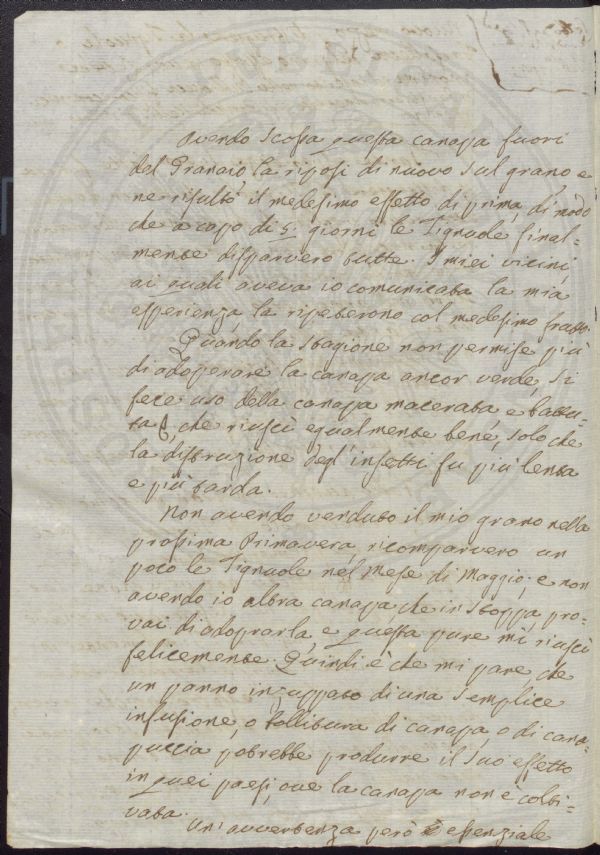 Avendo scossa questa canapa fuori
del Granaio, la riposi di nuovo sul grano e
ne risultò il medesimo effetto di prima, di modo
che a capo di 5. giorni le Tignuole final-
mente disparvero tutte. I miei vicini,
ai quali aveva io comunicata la mia
esperienza, la ripeterono col medesimo frutto.
Quando la stagione non permise più
di adoperare la canapa ancor verde, si
fece uso della canapa macerata e battu-
ta, che riuscì egualmente bene, solo che
la distruzione degl'insetti fu più lenta
e più tarda.
Non avendo venduto il mio grano nella
prossima Primavera, ricomparvero un
poco le Tignuole nel Mese di Maggio; e non
avendo io altra canapa, che in stoppa pro-
vai di adoprarla, e questa pure mi riuscì
felicemente. Quindi è che mi pare, che
un panno inzuppato di una semplice
infusione, o bollitura di canapa, o di cana-
puccia potrebbe produrre il suo effetto
in quei paesi, ove la canapa non è colti-
vata.
Un'avvertenza però è essenziale